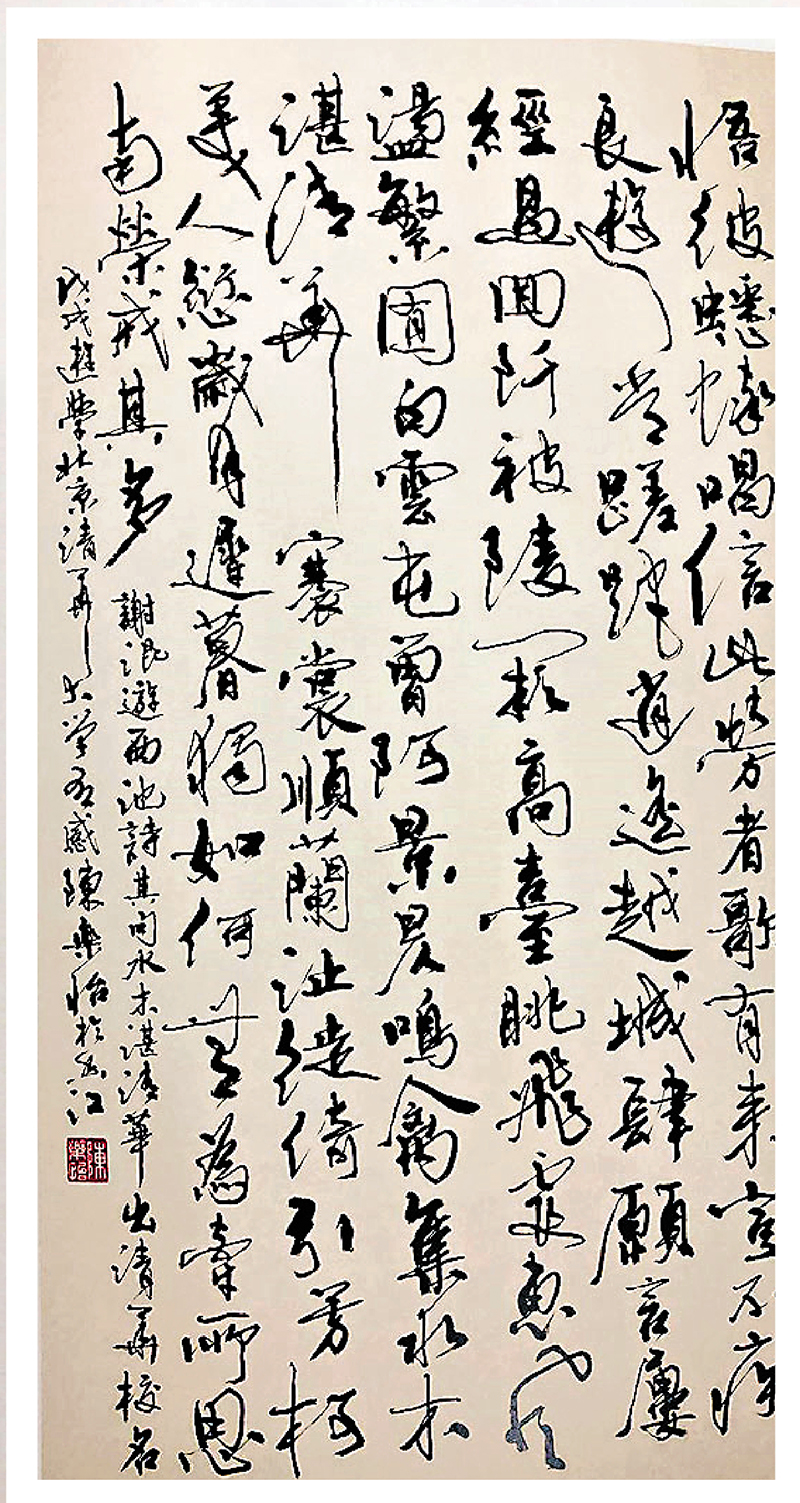 悟彼蟋蟀唱信此勞者歌有来豈不疾
良游常蹉跎逍遥越城肆願言屢
經過回阡被陵闕高臺眺飛霞惠風
盪繁囿白雲屯曾阿景昃鳴禽集水木
湛清華褰裳順蘭沚徙倚引芳柯
美人愆歲月遲暮獨如何無為牽所思
南榮戒其多 謝混遊西池詩其句水木湛清華出清華校名
戊戌遊學北京清華大学有感陳樂怡於江
陳樂怡